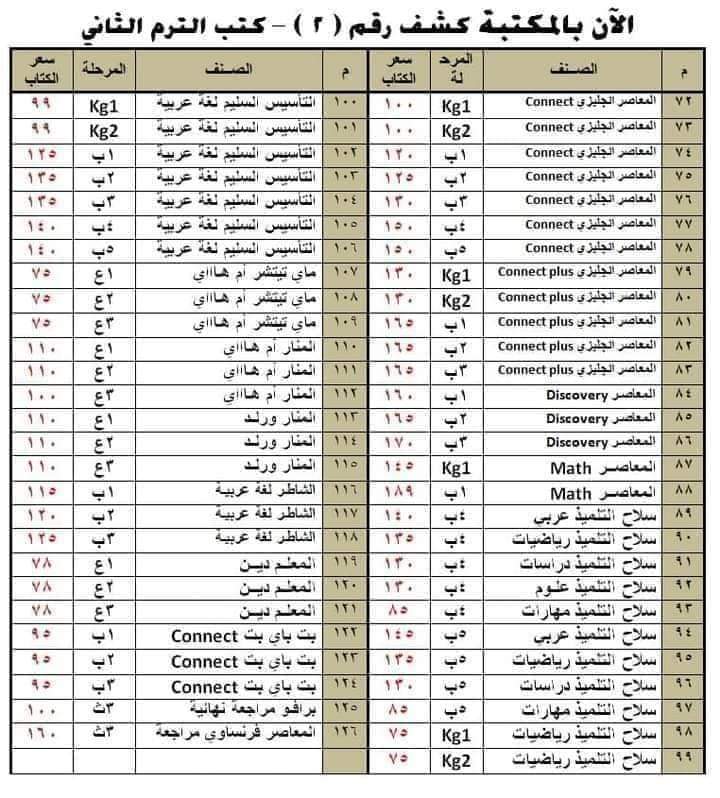 الآن بالمكتبة كشف رقم ( ٢ ) - كتب الترم الثاني
م الصـنـف المرحلة سعر الكتاب
٧٢ المعاصر انجليزي Connect Kg1 ١٠٠
٧٣ المعاصر انجليزي Connect Kg2 ١٠٠
٧٤ المعاصر انجليزي Connect ١ب ١٢٠
٧٥ المعاصر انجليزي Connect ٢ب ١٢٥
٧٦ المعاصر انجليزي Connect ٣ب ١٣٠
٧٧ المعاصر انجليزي Connect ٤ب ١٥٠
٧٨ المعاصر انجليزي Connect ٥ب ١٥٠
٧٩ المعاصر انجليزي Connect plus Kg1 ١٣٠
٨٠ المعاصر انجليزي Connect plus Kg2 ١٣٠
٨١ المعاصر انجليزي Connect plus ١ب ١٦٥
٨٢ المعاصر انجليزي Connect plus ٢ب ١٦٥
٨٣ المعاصر انجليزي Connect plus ٣ب ١٦٥
٨٤ المعاصر Discovery ١ب ١٦٠
٨٥ المعاصر Discovery ٢ب ١٦٥
٨٦ المعاصر Discovery ٣ب ١٧٠
٨٧ المعاصـر Math Kg1 ١٤٥
٨٨ المعاصـر Math ١ب ١٨٩
٨٩ سلاح التلميذ عربي ٤ب ١٤٠
٩٠ سلاح التلميذ رياضيات ٤ب ١٣٥
٩١ سلاح التلميذ دراسات ٤ب ١٣٠
٩٢ سلاح التلميذ علـوم ٤ب ١٣٠
٩٣ سلاح التلميذ مهارات ٤ب ٨٥
٩٤ سلاح التلميذ عربي ٥ب ١٤٥
٩٥ سلاح التلميذ رياضيات ٥ب ١٣٥
٩٦ سلاح التلميذ دراسات ٥ب ١٣٠
٩٧ سلاح التلميذ مهارات ٥ب ٨٥
٩٨ سلاح التلميذ رياضيات Kg1 ٧٥
٩٩ سلاح التلميذ رياضيات Kg2 ٧٥
م الصـنـف المرحلة سعر الكتاب
١٠٠ التأسيس السليم لغة عربية Kg1 ٩٩
١٠١ التأسيس السليم لغة عربية Kg2 ٩٩
١٠٢ التأسيس السليم لغة عربية ١ب ١٢٥
١٠٣ التأسيس السليم لغة عربية ٢ب ١٣٥
١٠٤ التأسيس السليم لغة عربية ٣ب ١٣٥
١٠٥ التأسيس السليم لغة عربية ٤ب ١٤٠
١٠٦ التأسيس السليم لغة عربية ٥ب ١٤٠
١٠٧ ماي تيتشر أم هاااي ١ع ٧٥
١٠٨ ماي تيتشر أم هاااي ٢ع ٧٥
١٠٩ ماي تيتشر أم هاااي ٣ع ٧٥
١١٠ المنار أم هاااي ١ع ١١٠
١١١ المنار أم هاااي ٢ع ١١٠
١١٢ المنار أم هاااي ٣ع ١٠٠
١١٣ المنار ورلـد ١ع ١١٠
١١٤ المنار ورلـد ٢ع ١١٠
١١٥ المنار ورلـد ٣ع ١١٠
١١٦ الشاطر لغة عربية ١ب ١١٥
١١٧ الشاطر لغة عربية ٢ب ١٢٠
١١٨ الشاطر لغة عربية ٣ب ١٢٥
١١٩ المعلـم ديـن ١ع ٧٨
١٢٠ المعلـم ديـن ٢ع ٧٨
١٢١ المعلـم ديـن ٣ع ٧٨
١٢٢ بت باي بت Connect ١ب ٩٥
١٢٣ بت باي بت Connect ٢ب ٩٥
١٢٤ بت باي بت Connect ٣ب ٩٥
١٢٥ برافـو مراجعة نهائية ٣ث ١٠٠
١٢٦ المعاصر فرنساوي مراجعة ٣ث ١٦٠